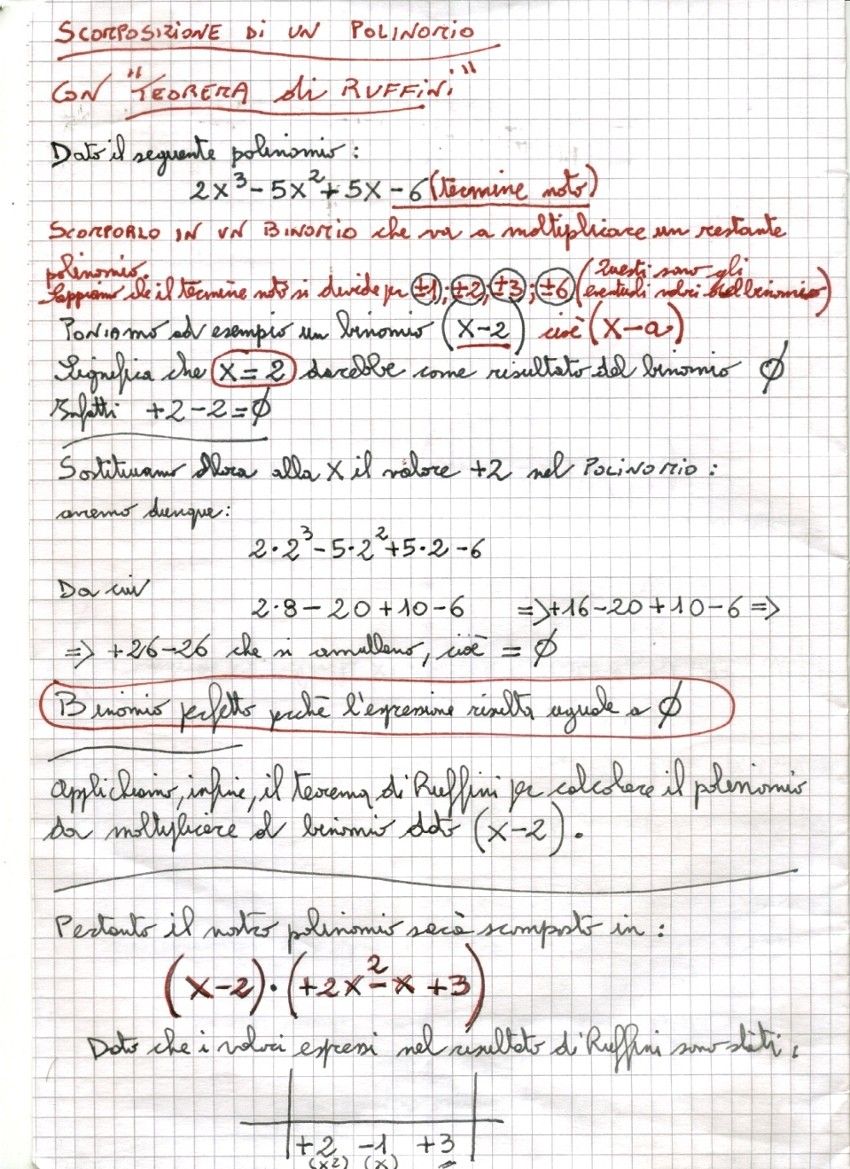 SCOMPOSIZIONE DI UN POLINOMIO
CON "TEOREMA di RUFFINI"
Dato il seguente polinomio:
2x³ - 5x² + 5x - 6 (termine noto)
SCOMPORLO IN UN BINOMIO che va a moltiplicare un restante
polinomio.
Sappiamo che il termine noto si divide per ±1; ±2; ±3; ±6 (Questi sono gli eventuali valori del binomio)
PONIAMO ad esempio un binomio (x-2) cioè (x-a)
Significa che x=2 darebbe come risultato del binomio Ø
Infatti +2-2=Ø
Sostituiamo allora alla x il valore +2 nel POLINOMIO:
avremo dunque:
2·2³-5·2²+5·2-6
Da cui
2·8-20+10-6 => +16-20+10-6 =>
=> +26-26 che si annullano, cioè = Ø
Binomio perfetto perchè l'espressione risulta uguale a Ø
Applichiamo, infine, il teorema di Ruffini per calcolare il polinomio
da moltiplicare al binomio dato (x-2).
Pertanto il nostro polinomio sarà scomposto in:
(x-2)·(+2x²-x+3)
Dato che i valori espressi nel risultato di Ruffini sono stati:
+2 -1 +3
(x2) (x)